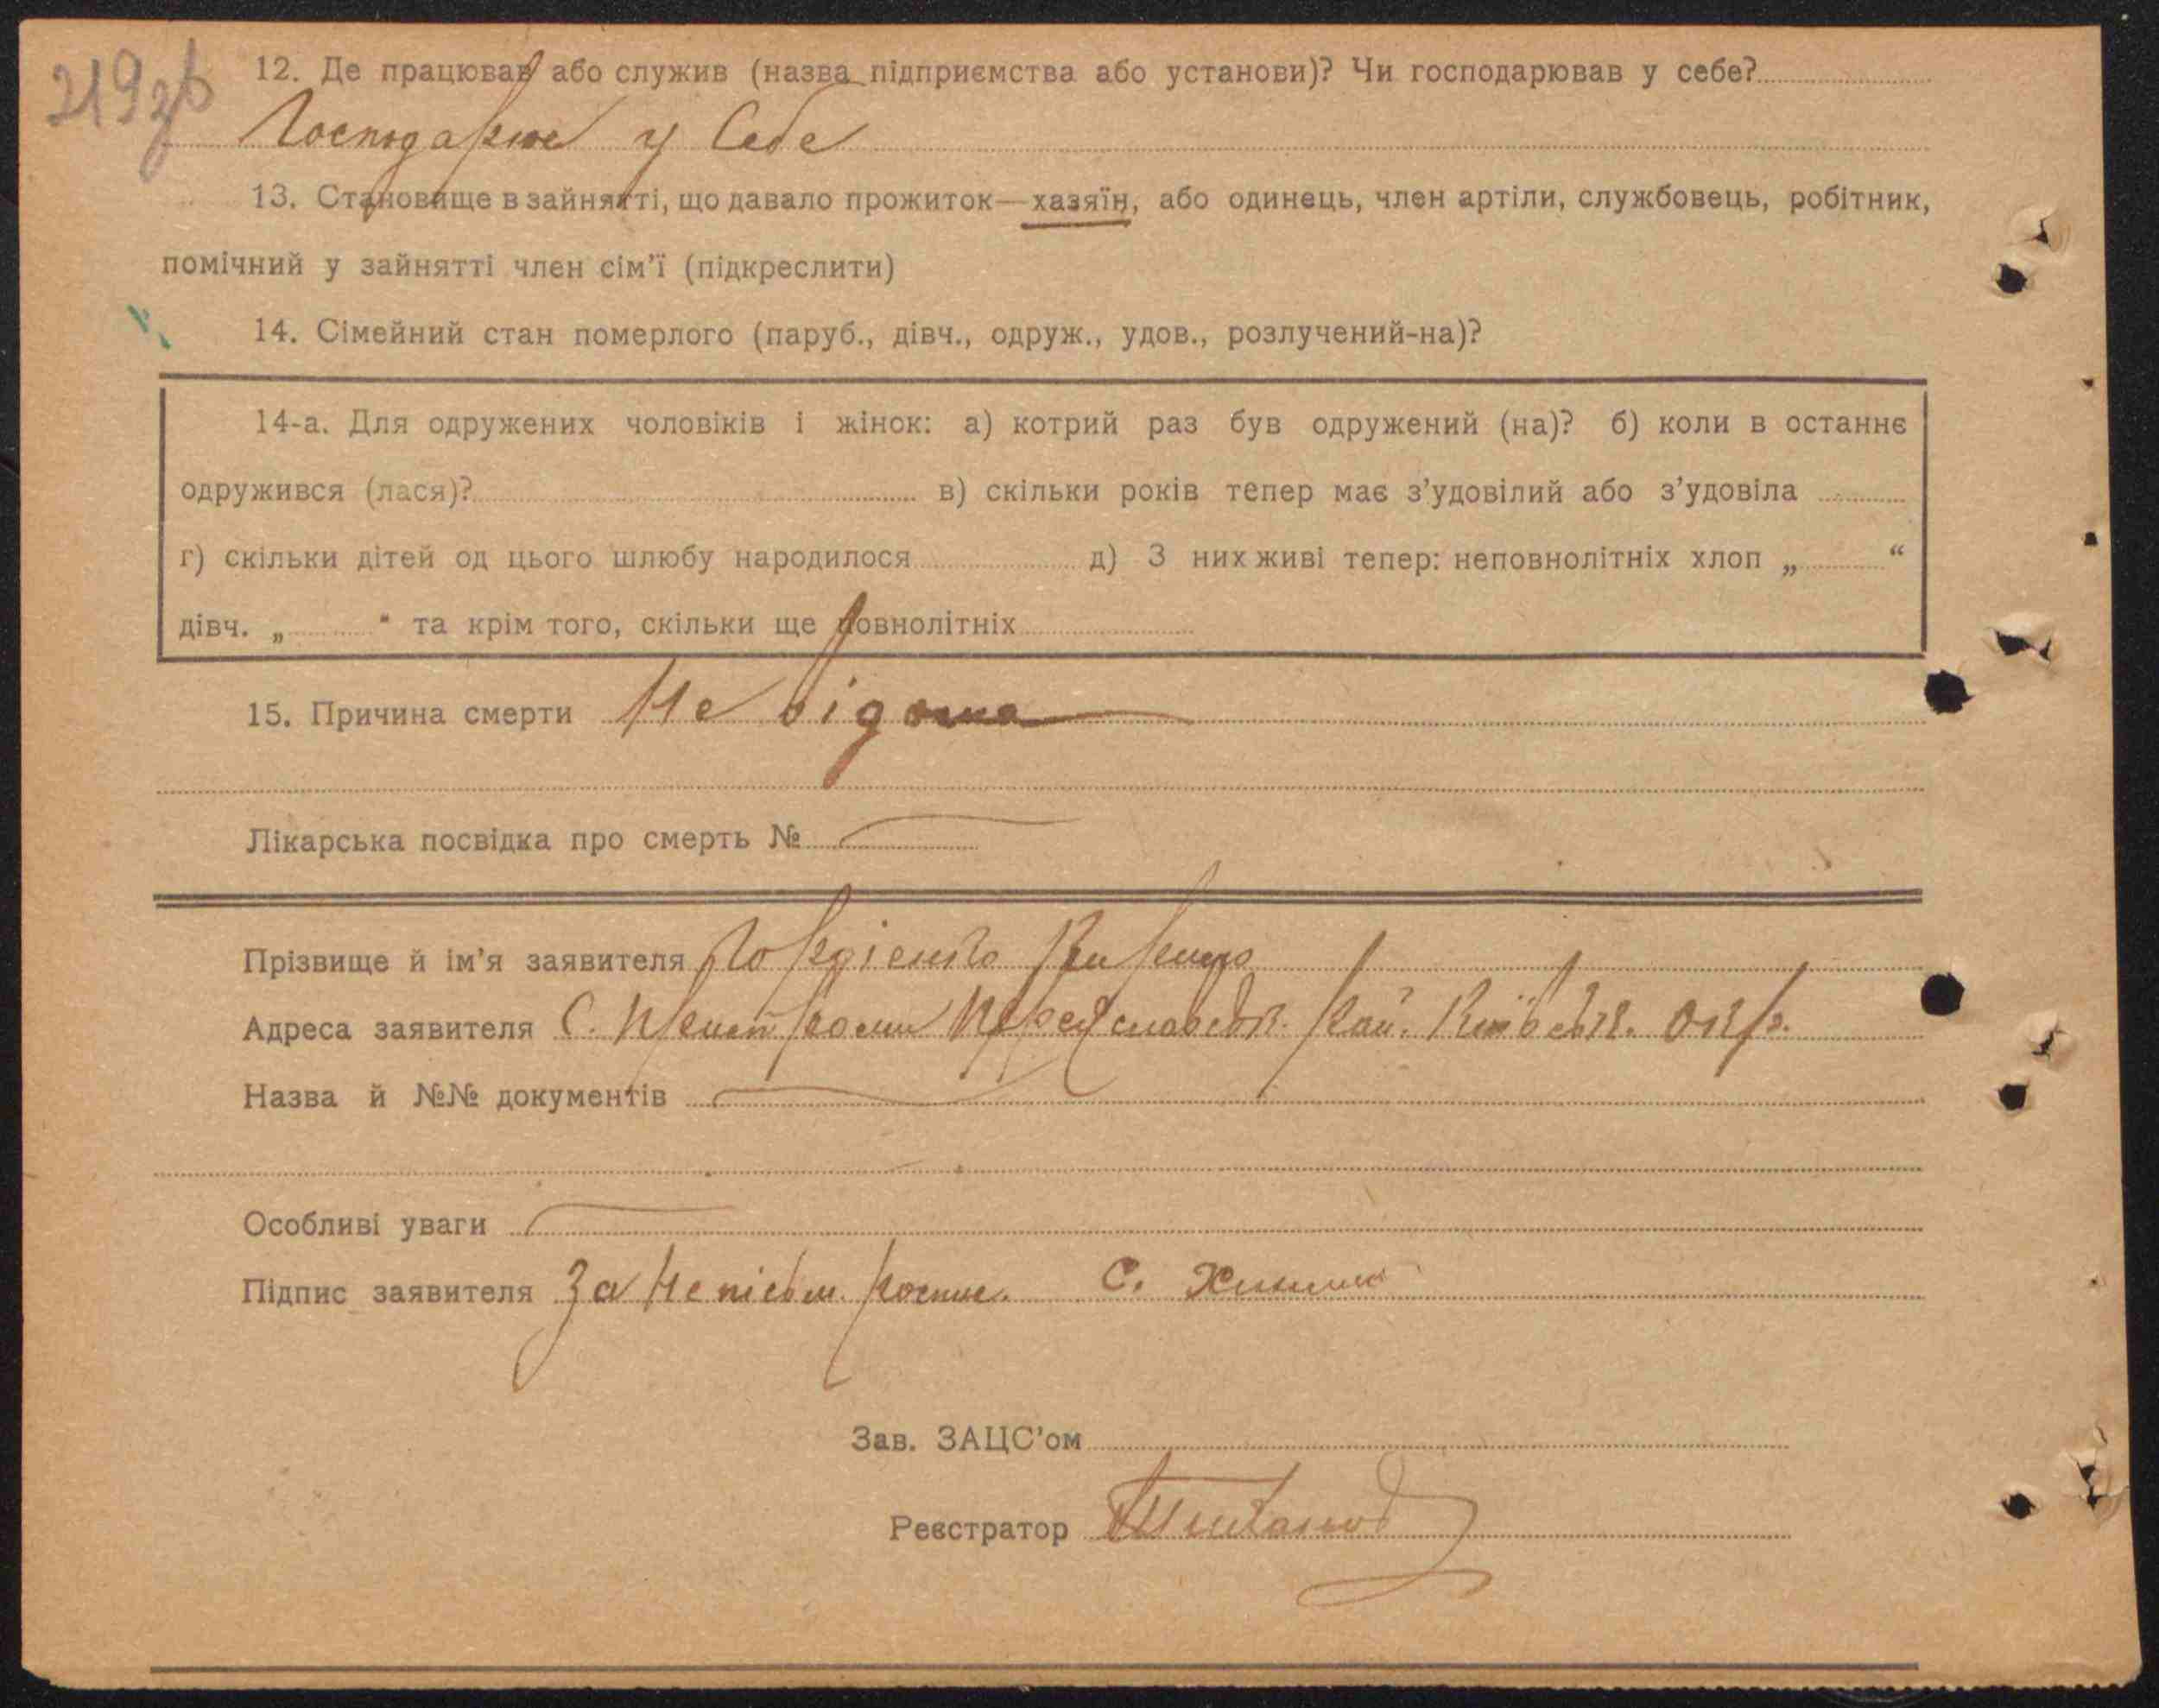 219зв
12. Де працював або служив (назва підприємства або установи)? Чи господарював у себе?
Господарює у Себе
13. Становище в зайнятті, що давало прожиток—хазяїн, або одинець, член артіли, службовець, робітник,
помічний у зайнятті член сім'ї (підкреслити)
14. Сімейний стан померлого (паруб., дівч., одруж., удов., розлучений-на)?
14-а. Для одружених чоловіків і жінок: а) котрий раз був одружений (на)? б) коли в останнє
одружився (лася)? в) скільки років тепер має з'удовілий або з'удовіла
г) скільки дітей од цього шлюбу народилося д) З них живі тепер: неповнолітніх хлоп „ “
дівч. „ “ та крім того, скільки ще повнолітніх
15. Причина смерти Не відома
Лікарська посвідка про смерть №
Прізвище й ім'я заявителя Гордієнко
Адреса заявителя С. Переяславськ. рай. Київськ. Окр.
Назва й №№ документів
Особливі уваги
Підпис заявителя За Неписьм. роспис. С.
Зав. ЗАЦС'ом
Реєстратор